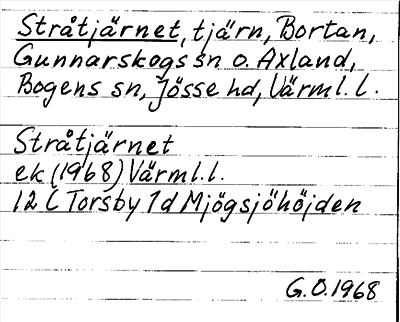 Stråtjärnet, tjärn, Bortan,
Gunnarskogs sn o. Axland,
Bogens sn, Jösse hd, Värml. l.
Stråtjärnet
ek (1968) Värml.l.
12 C Torsby 1d Mjögsjöhöjden
G.O. 1968